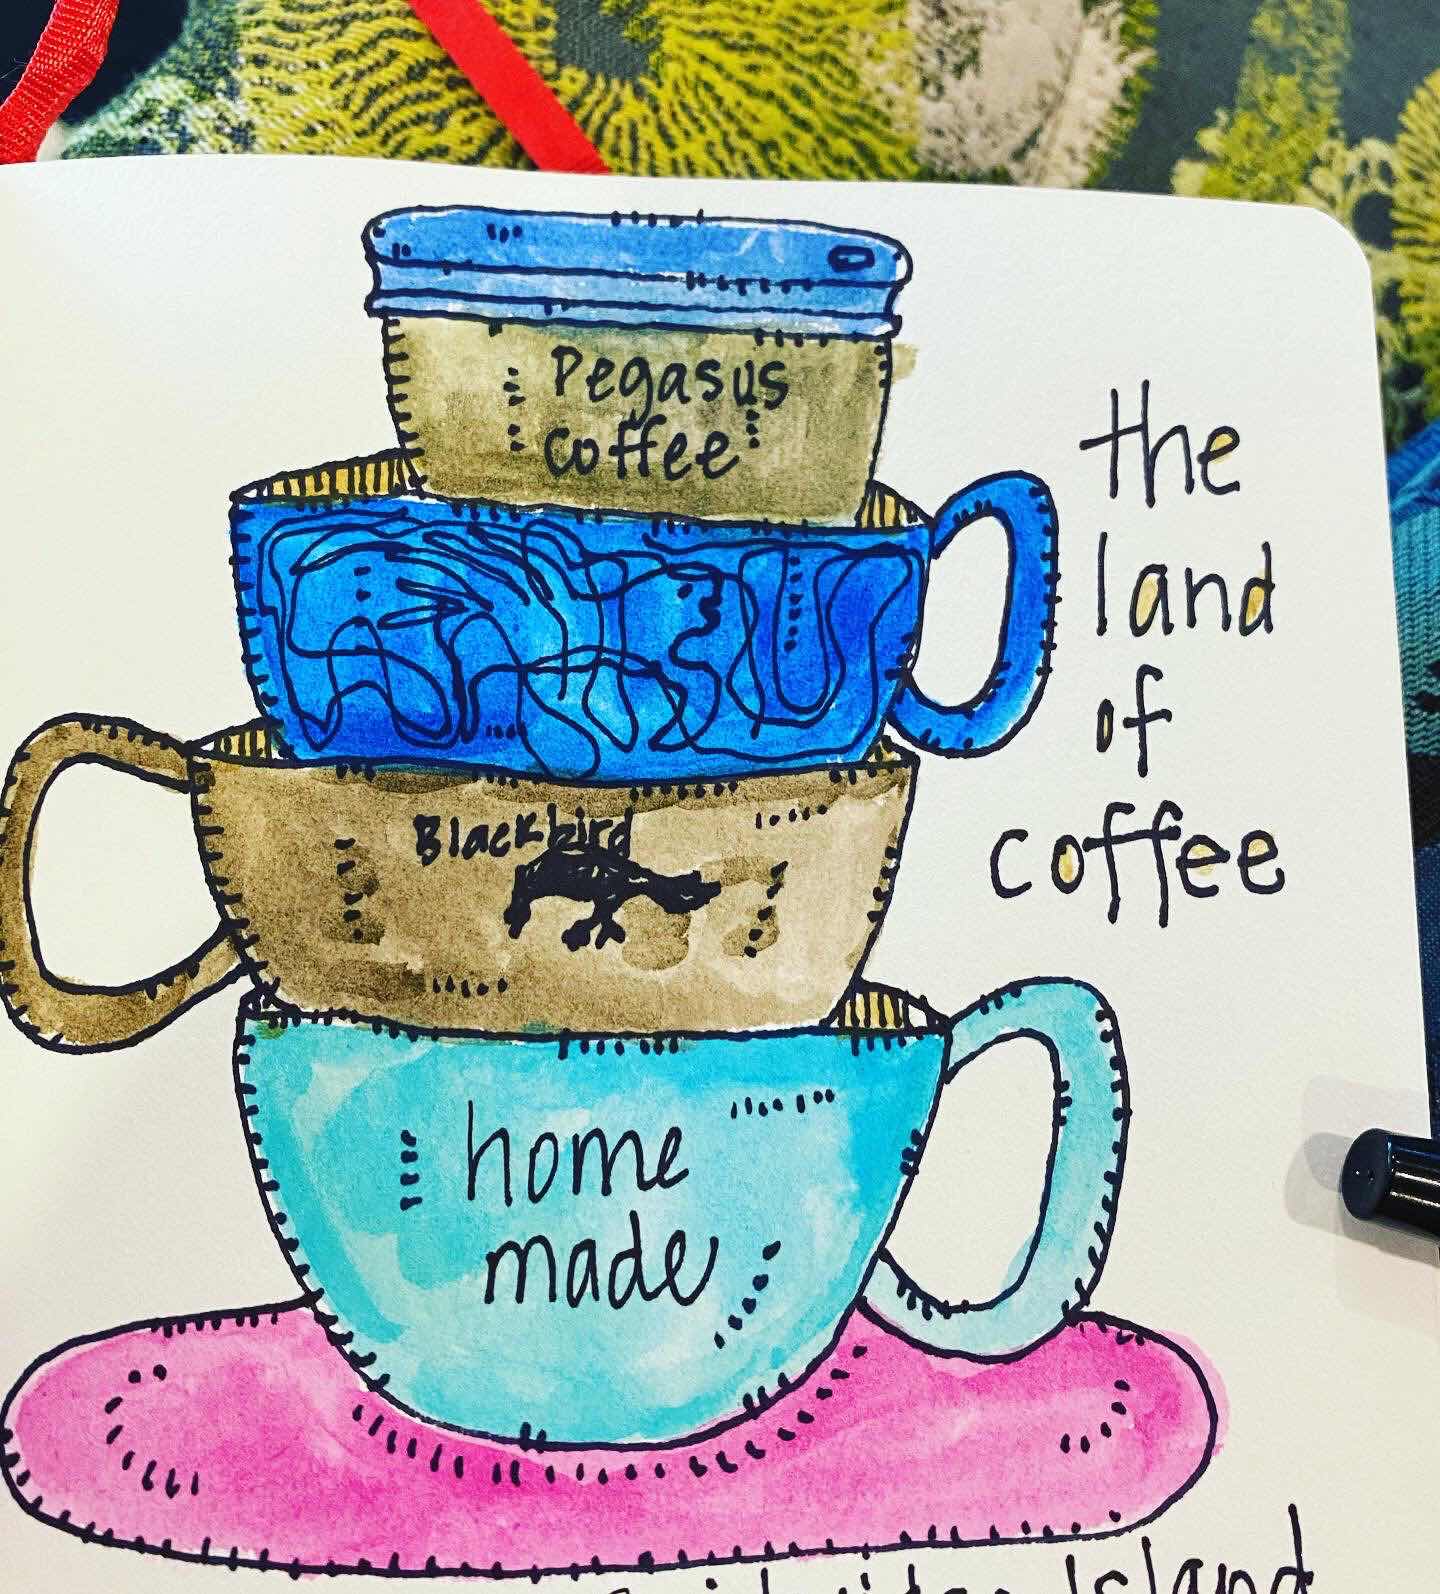 Pegasus
coffee
Blackbird
home
made
the
land
of
coffee
Island